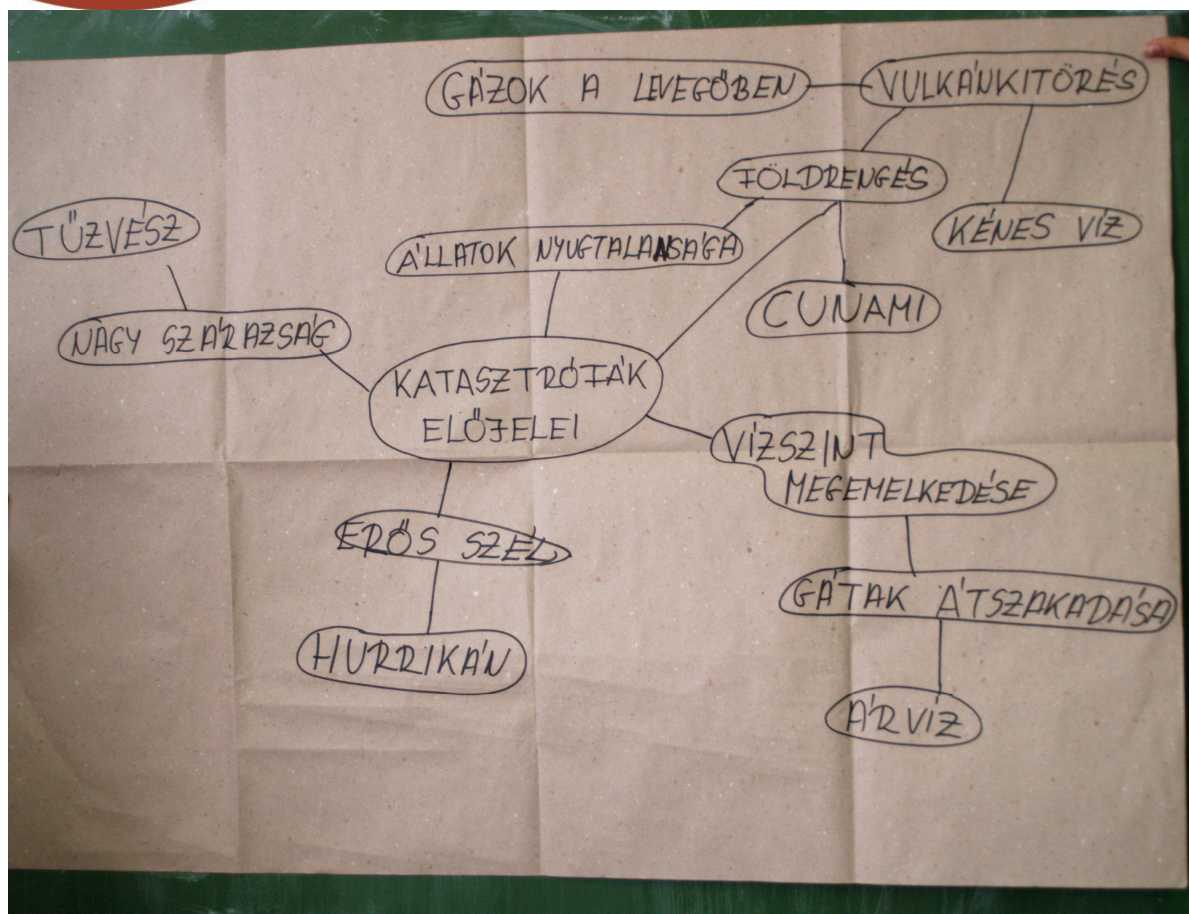 GÁZOK A LEVEGŐBEN
VULKÁNKITÖRÉS
FÖLDRENGÉS
TŰZVÉSZ
KÉNES VÍZ
ÁLLATOK NYUGTALANSÁGA
CUNAMI
NAGY SZÁRAZSÁG
KATASZTRÓFÁK
ELŐJELEI
VÍZSZINT
MEGEMELKEDÉSE
ERŐS SZÉL
GÁTAK ÁTSZAKADÁSA
HURRIKÁN
ÁRVÍZ